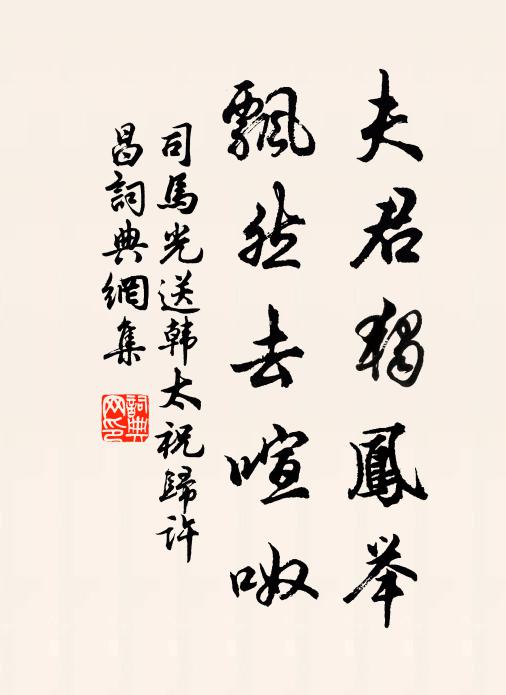 夫君獨鳳举
飄然去喧呶
司馬光送韩太祝歸许
昌詞典網集
詞典
网印